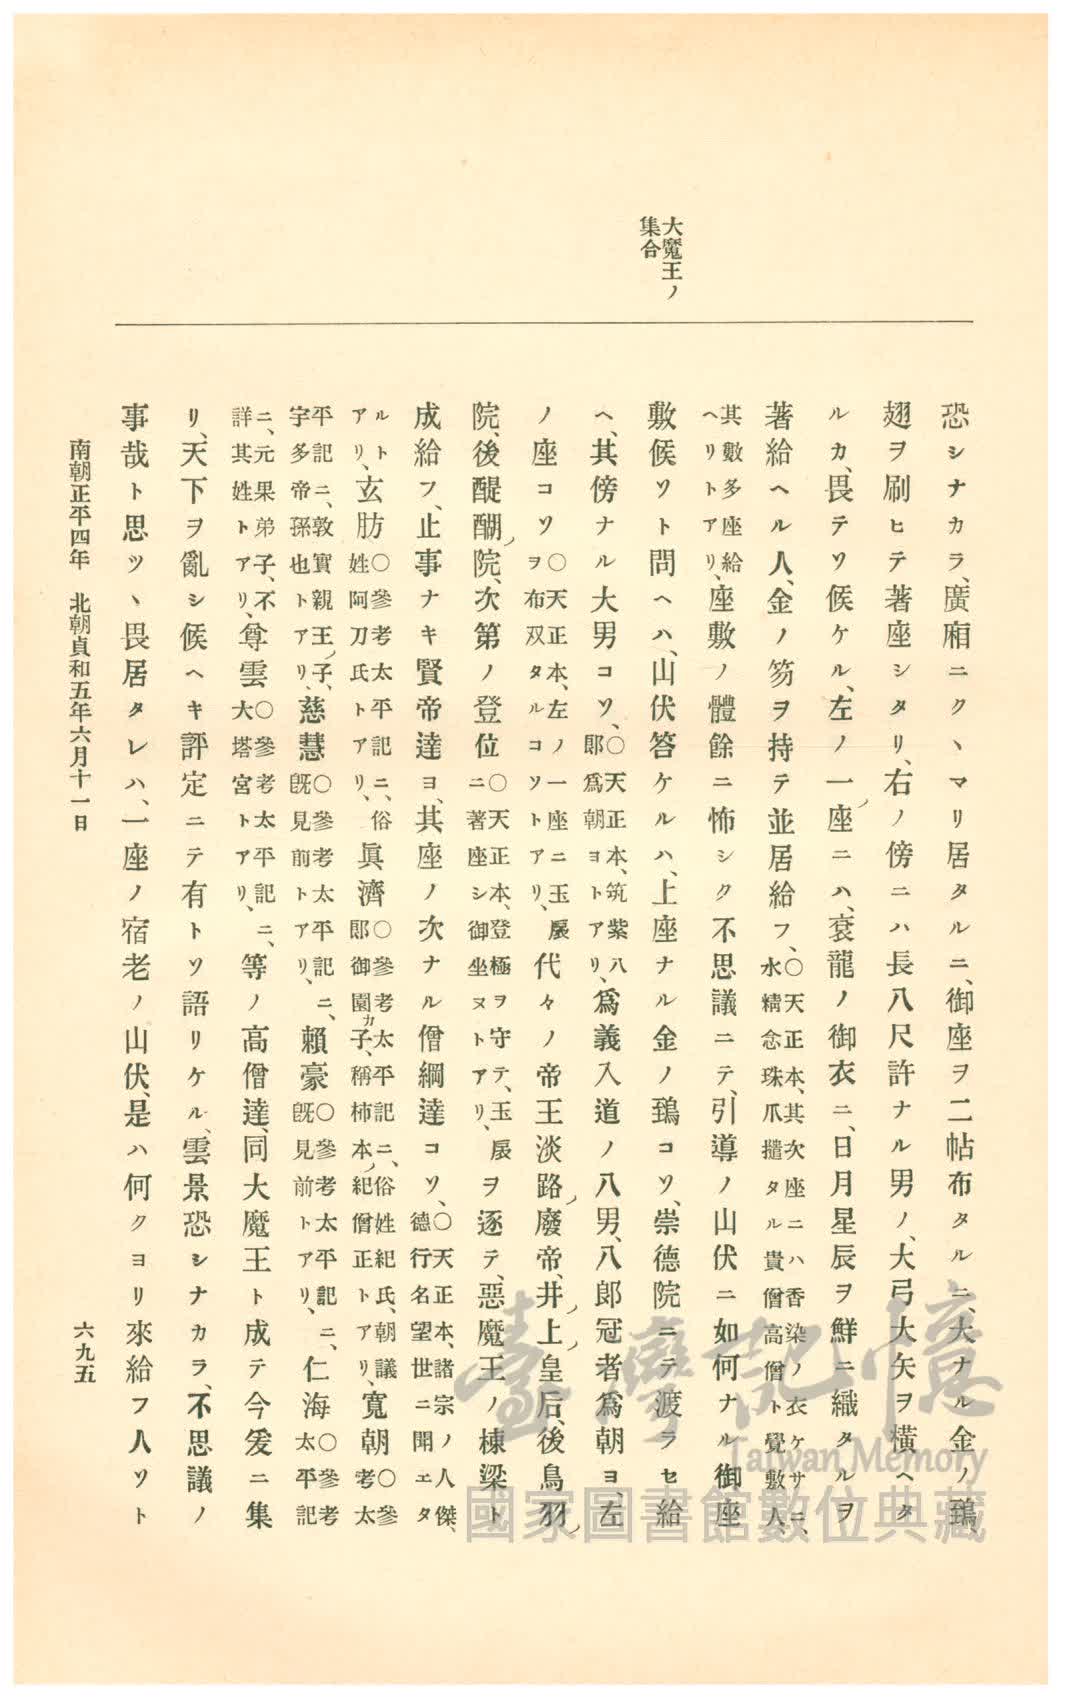 大魔王ノ
集合
恐シナカラ、廣廂ニクヽマリ居タルニ、御座ヲ二帖布タルニ、大ナル金ノ鵄、
翅ヲ刷ヒテ著座シタリ、右ノ傍ニハ長八尺許ナル男ノ、大弓大矢ヲ横ヘタ
ルカ、畏テソ候ケル、左ノ一座ニハ、袞龍ノ御衣ニ、日月星辰ヲ鮮ニ織タルヲ
著給ヘル人、金ノ笏ヲ持テ並居給フ、○天正本、其次座ニハ香染ノ衣ケサニ、水精念珠爪繾タル貴僧高僧ト覺敷人、
其數多座給ヘリトアリ、座敷ノ體餘ニ怖シク不思議ニテ、引導ノ山伏ニ如何ナル御座
敷候ソト問ヘハ、山伏答ケルハ、上座ナル金ノ鵄コソ、崇德院ニテ渡ラセ給
ヘ、其傍ナル大男コソ、○天正本、筑紫八郎爲朝ヨトアリ、爲義入道ノ八男、八郎冠者爲朝ヨ、左
ノ座コソ○天正本、左ノ一座ニ玉扆ヲ布双タルコソトアリ、代々ノ帝王淡路廢帝、井上皇后、後鳥羽
院、後醍醐院、次第ノ登位○天正本、登極ヲ守テ、玉扆ニ著座シ御坐ヌトアリ、ヲ逐テ、惡魔王ノ棟梁ト
成給フ、止事ナキ賢帝達ヨ、其座ノ次ナル僧綱達コソ、○天正本、諸宗ノ人傑、德行名望世ニ聞エタ
ルトアリ、玄肪○參考太平記ニ、俗姓阿刀氏トアリ、眞濟○參考太平記ニ、俗姓紀氏、朝議郎御園カ子、稱柿本紀僧正トアリ、寬朝○參考太
平記ニ、敦實親王子、宇多帝孫也トアリ、慈慧○參考太平記ニ、既見前トアリ、賴豪○參考太平記ニ、既見前トアリ、仁海○參考太平記
ニ、元果弟子、不詳其姓トアリ、尊雲○參考太平記ニ、大塔宮トアリ、等ノ高僧達、同大魔王ト成テ今爰ニ集
リ、天下ヲ亂シ候ヘキ評定ニテ有トソ語リケル、雲景恐シナカラ、不思議ノ
事哉ト思ツヽ畏居タレハ、一座ノ宿老ノ山伏、是ハ何クヨリ來給フ人ソト
南朝正平四年 北朝貞和五年六月十一日
六九五
臺灣記憶
Taiwan Memory
國家圖書館數位典藏